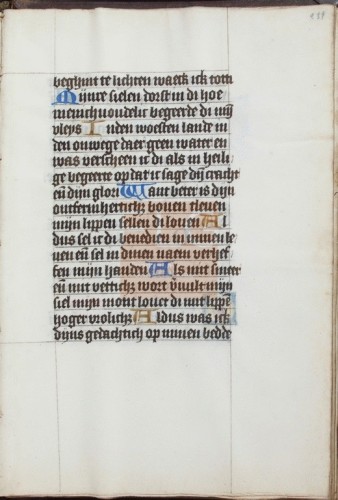 138
beghint te lichten waeck ick tot ti
Mijnre sielen dorst in di hoe
menichuoudelic begeerde di mijn
vleys In den woesten lande in
den onwege daer geen water en
was verscheen ic di als in heili
ge begeerte op dat ic sage dijn cracht
eñ dijn glori Want beter is dijn
ontfermherticheit bouen tleuen
mijn lippen sellen di louen Al
dus sel ic di benedien in minen le
uen eñ sel in dinen naem verhef
fen mijn handen Als mit smeer
eñ mit vetticheit wort veruult mijn
siel mijn mont louet di mit lippen
hoger vrolicheit Aldus was ick
dijns gedachtich op minen bedde